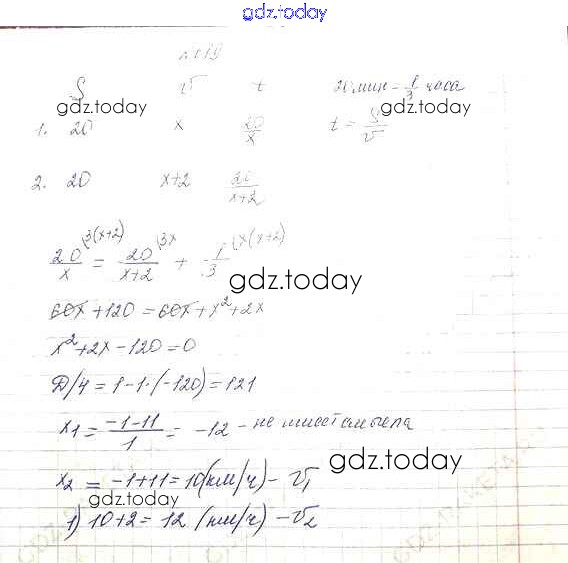 gdz.today
S v t 20 мин = 1/3 часа
gdz.today gdz.today
1. 20 x 20/x t = S/v
2. 20 x+2 20/(x+2)
20/x (3(x+2) = 20/(x+2) (3x + 1/3 (x(x+2)
gdz.today
60x + 120 = 60x + x² + 2x
x² + 2x - 120 = 0
D/4 = 1 - 1·(-120) = 121
x1 = (-1-11)/1 = -12 - не имеет смысла
x2 = -1+11 = 10 (км/ч) - v1
gdz.today
gdz.today
1) 10+2 = 12 (км/ч) - v2